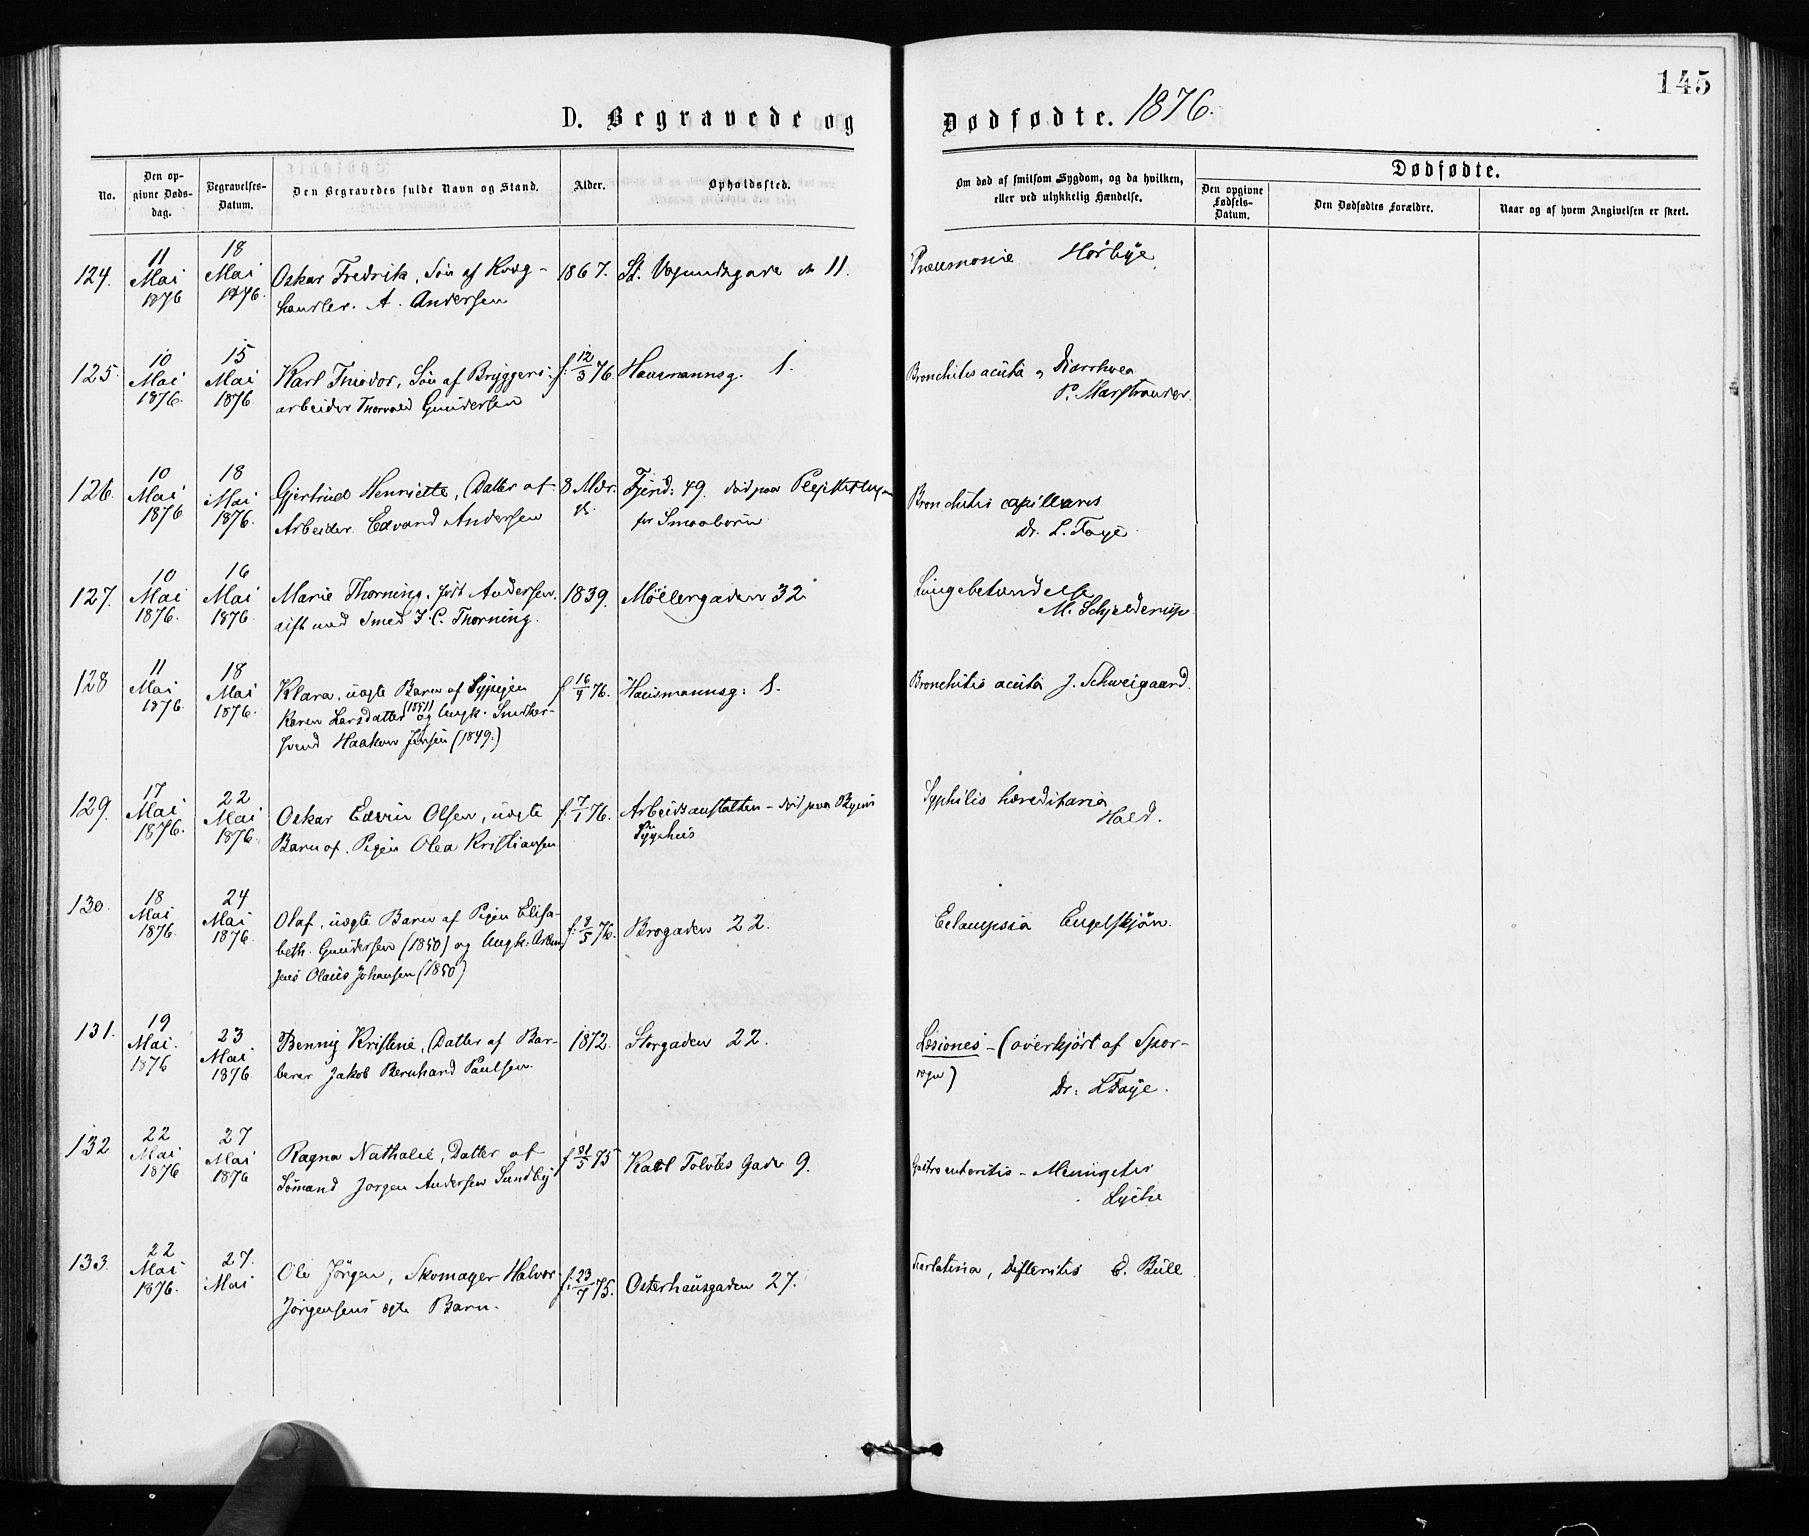 145
D. Begravede og Dødfødte. 1876.
No.
Den op-
givne Døds-
dag.
Begravelses-
Datum.
Den Begravedes fulde Navn og Stand.
Alder.
Opholdssted.
Om død af smitsom Sygdom, og da hvilken,
eller ved ulykkelig Hændelse.
Dødfødte.
Den opgivne
Fødsels-
Datum.
Den Dødfødtes Forældre.
Naar og af hvem Angivelsen er skeet.
124. 11 Mai 1876 18 Mai 1876. Oskar Fredrik, Søn af Kvæg- 1867. 11. Pneumonie Hørbye
handler. A. Andersen
125. 10 Mai 1876. 15 Mai 1876. Karl Theodor, Søn af Bryggeri- f. 12/3 76. Hausmannsg. 1. Bronchitis acuta og Diarrhoea
arbeider Thorvald Gundersen P. Marstrander.
126. 10 Mai 1876 18 Mai 1876. Gjertrud Henriette, Datter af 8 Mdr. Fjerd: 49. død paa Bronchitis capillaris
Arbeider Edvard Andersen for Smaabørn Dr. L. Faye.
127. 10 Mai 1876. 16 Mai 1876. Marie Thorning, født Andersen. 1839. Møllergaden 32 Lungebetændelse
gift med Smed J. C. Thorning. M. Schjelderup.
128 11 Mai 1876. 18 Mai 1876. Klara, uægte Barn af Sypigen f. 16/4 76. Hausmannsg: 1. Bronchitis acuta J. Schweigaard.
Karen Larsdatter (1851) og Ungk. Snedker-
svend Haakon Jensen (1849.)
129. 17 Mai 1876. 22 Mai 1876. Oskar Edvin Olsen, uægte f. 7/1 76. Arbeidsanstalten – død paa Byens Syphilis hæreditaria
Barn af Pigen Olea Kristiansen Sygehus Hald.
130. 18 Mai 1876. 24 Mai 1876. Olaf, uægte Barn af Pigen Elisa- f. 9/5 76. Brogaden 22. Eclampsia Engelskjøn.
beth Gundersen (1850) og Ungk. Arbm
Jens Olaus Johansen (1850)
131. 19 Mai. 1876 23 Mai 1876. Benny Kristine, Datter af Bar- 1872. Storgaden 22. Læsiones – (overkjørt af Spor-
berer Jakob Bernhard Paulsen. vogn)
Dr: L Faye.
132 22 Mai 1876 27 Mai 1876 Ragna Nathalie, Datter af f 31/5 75 Karl Tolvtes Gade 9. Gastroenteritis – Meningitis
Sømand Jørgen Andersen Sundby Lyche
133. 22 Mai 1876. 27. Mai Ole Jörgen, Skomager Halvor f. 23/7 75. Osterhausgaden 27. Scarlatina, Difteritis E. Bull
Jørgensens ægte Barn.